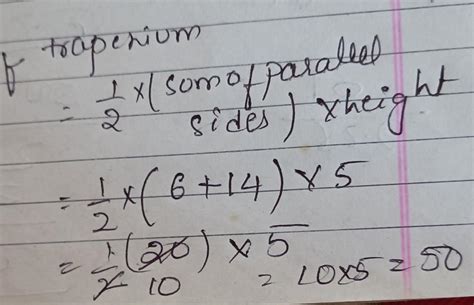 f trapezium
= 1/2 × (sum of parallel
sides) × height
= 1/2 × (6 + 14) × 5
= 1/2 (20) × 5
10 = 10 × 5 = 50